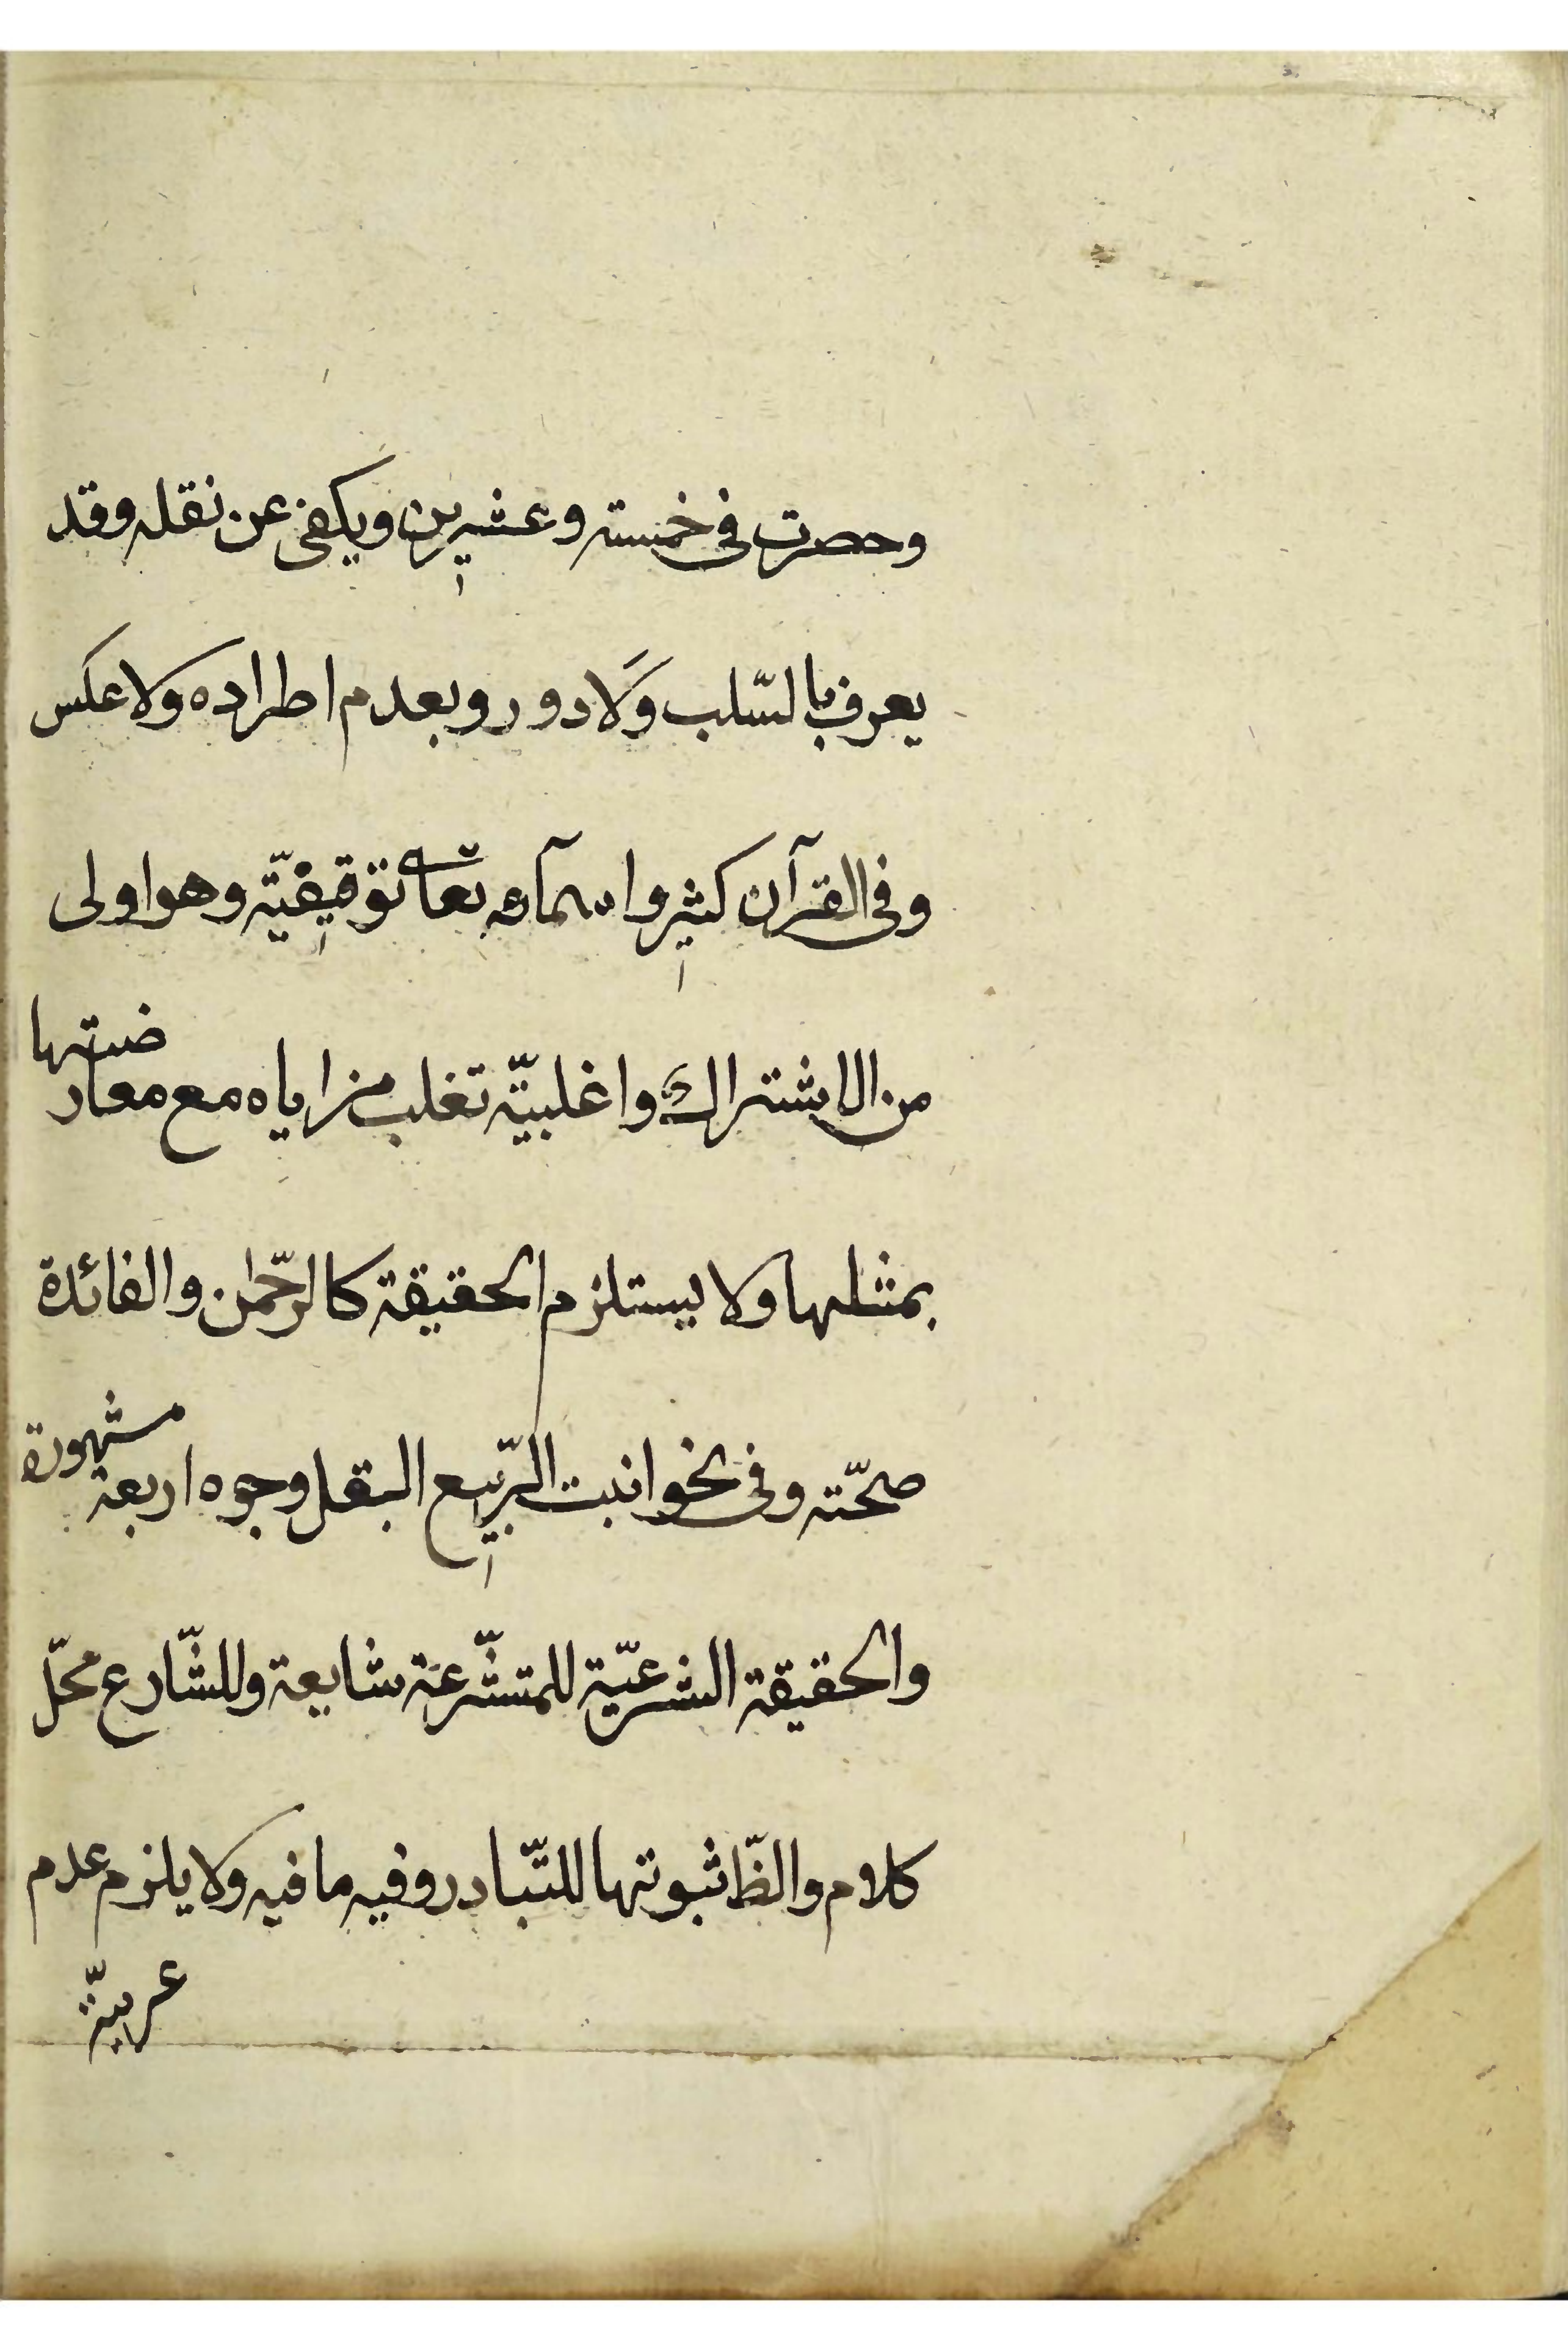 وحصرت في خمسته وعشيرين ويكفى عن نقله وقد
يعرف بالسّلب وَلا دور وبعدم اطراده ولا عكس
وفي القرآن كثير واسمآءه تعالى توقيفيّته وهو اولى
من الاشتراك واغلبيّته تغلب مزاياه مع معارضتها
بمثلها ولا يستلزم الحقيقة كالرحّمٰن والفائدة
صحّته وفي نحو انبت الرّبيع البقل وجوه اربعة مشهورة
والحقيقة الشرعيّة للمتشّرعة شايعة وللشّارع محّل
كلام والظّ ثبوتها للتّبادر وفيه ما فيه ولا يلزم عدم
عربيّة